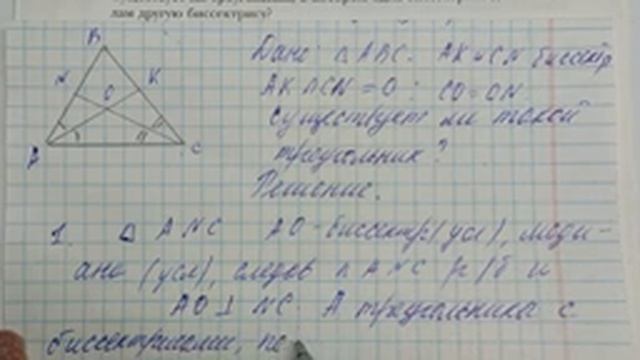 лам другую биссектрису?
Дано: △ ABC. AK и CN биссектр
AK ∩ CN = O : CO = ON
Существует ли такой
треугольник?
Решение.
B
N
K
O
A
C
1. △ ANC AO - биссектр (усл), меди-
ана (усл), следов △ ANC р/б и
AO ⊥ NC. А треугольника с
биссектрисами, пе